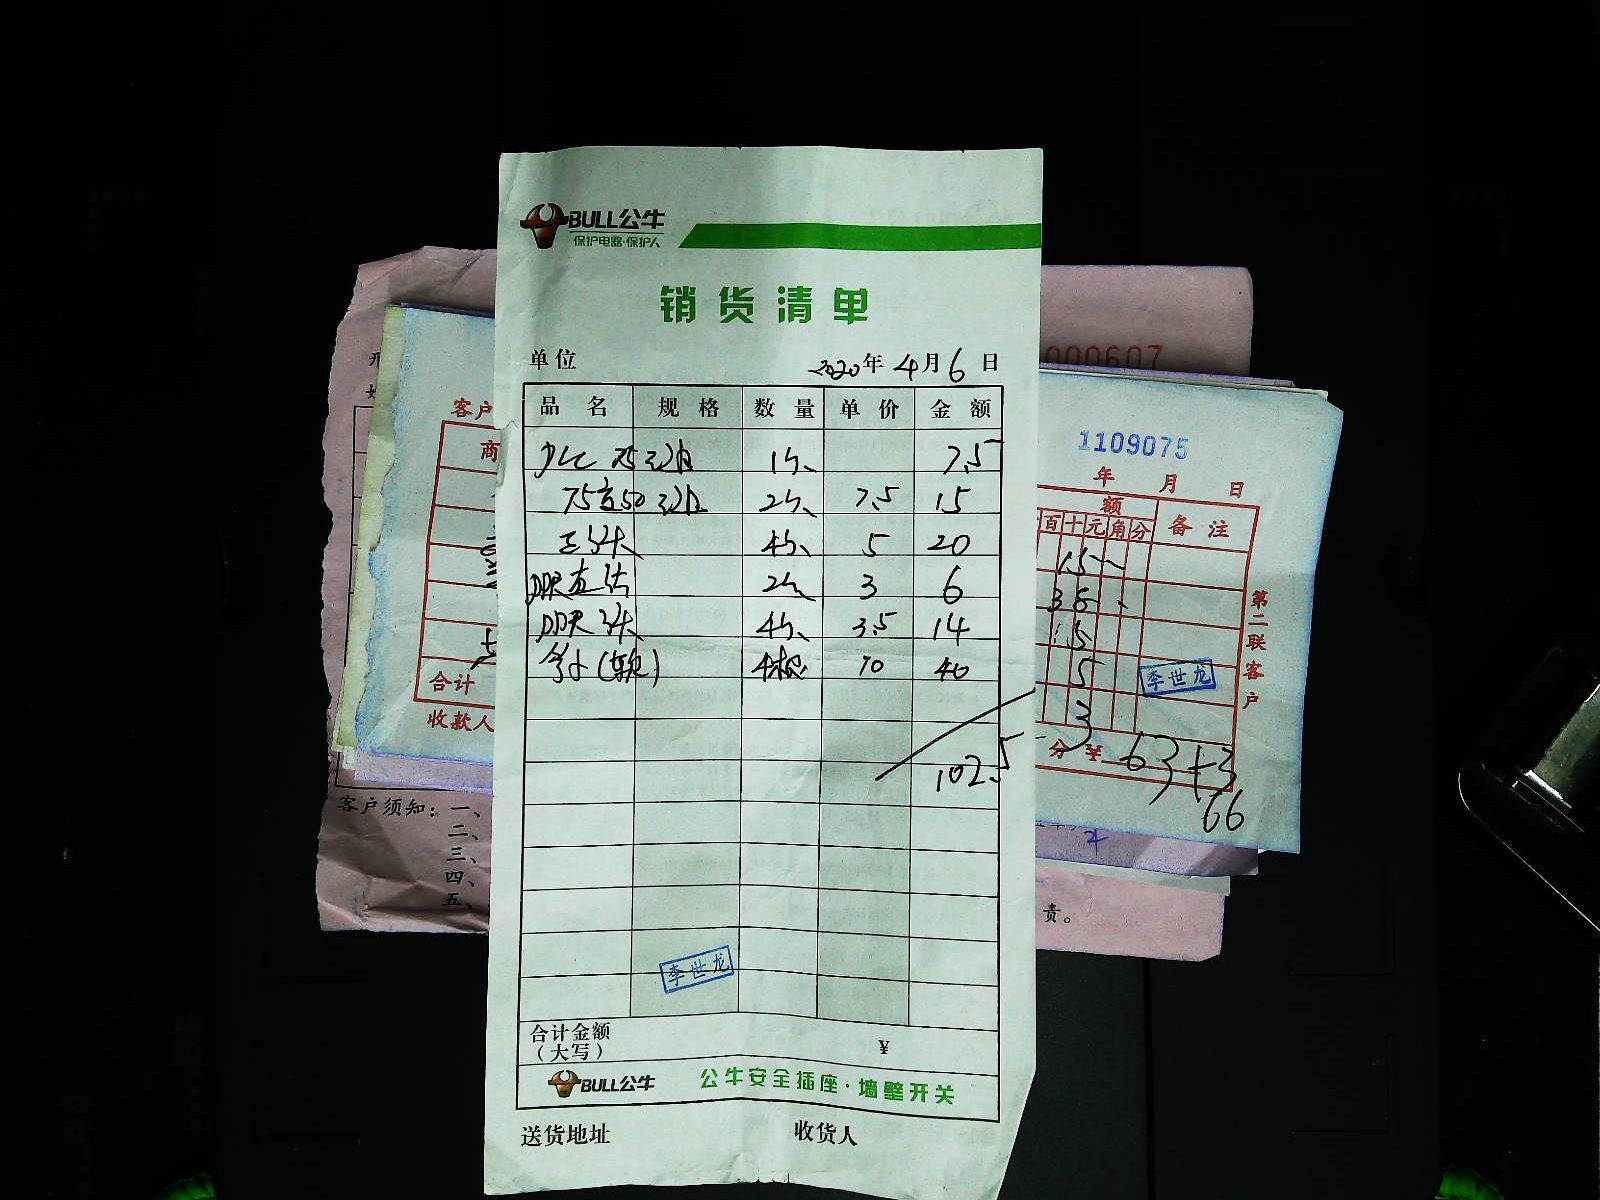 BULL公牛
保护电器·保护人
销货清单
单位 2020年4月6日
品名 规格 数量 单价 金额
75 1个 7.5
75变50 2个 7.5 15
4个 5 20
直 2个 3 6
4个 3.5 14
(软) 4根 10 40
102.5
李世龙
合计金额
（大写） ¥
BULL公牛 公牛安全插座·墙壁开关
送货地址 收货人
客户
商
合计
收款人
客户须知：一、
二、
三、
四、
五、
000607
1109075
年 月 日
额
百十元角分 备注
15
38
15
5
3
李世龙
分 ¥ 63+3
66
第二联客户
责。